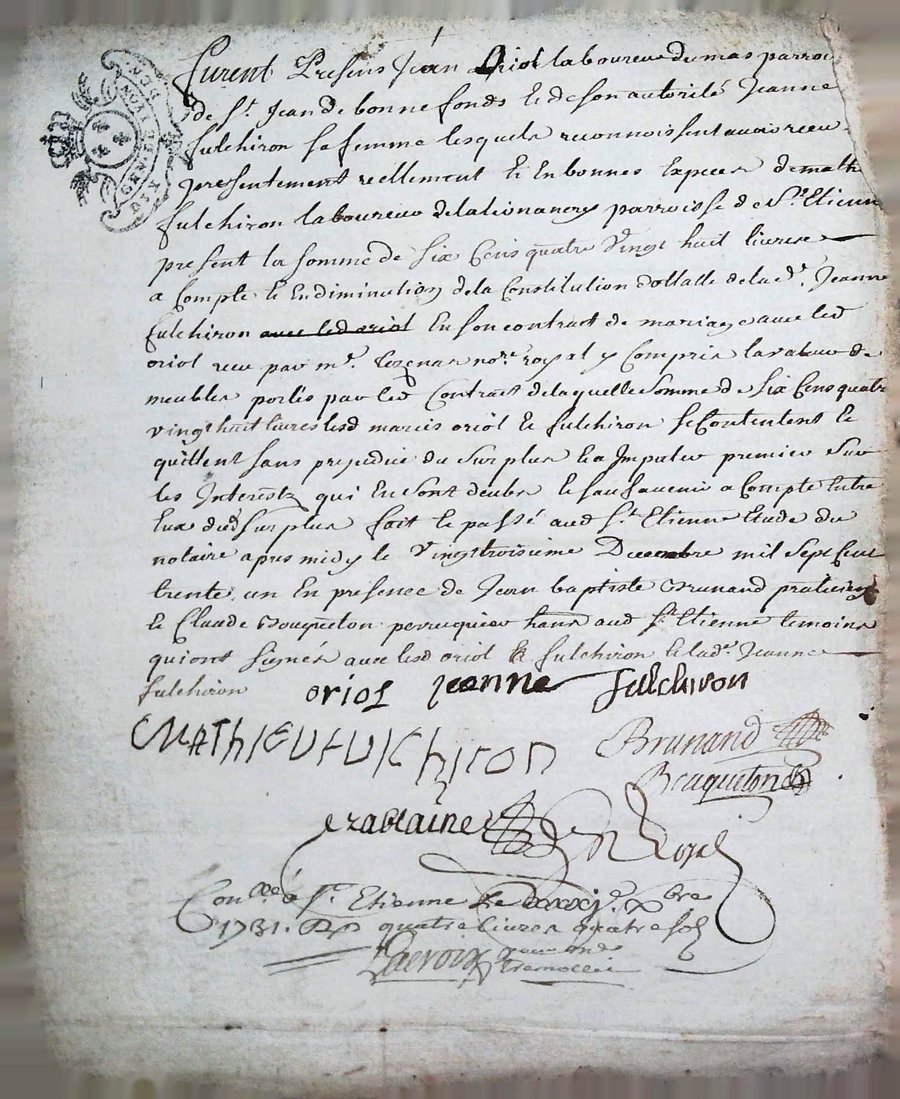 furent Presens Jean Oriol laboureur du mas parroi
de St. Jean de bonnefonds et de son autorité Jeanne
fulchiron sa femme lesquels reconnoissent avoir receu
presentement reellement et en bonnes Especes de math
fulchiron laboureur de la parroisse de St Etienne
present la somme de Six Cens quatre Vingt huit livres
a Compte et En diminution de la Constitution dottalle de lad. Jeanne
fulchiron avec led oriol En son contract de mariage avec led
oriol receu par me. nore royal y Compris la valeur de
meubles portés par led Contract de laquelle Somme de Six Cens quatre
vingt huit livres lesd mariés oriol et fulchiron se Contentent et
quittent sans prejudice du Surplus et a Imputer premier Sur
les Interestz qui En sont deubs et sauf a venir a Compte Entre
Eux dud Surplus fait et passé aud St. Etienne Etude du
notaire apres midy le Vingt troisieme Decembre mil Sept Cent
trente un En presence de Jean baptiste Brunand praticien
et Claude Bouqueton perruquier hans aud St Etienne temoins
qui ont signés avec lesd oriol et fulchiron et lade. Jeanne
fulchiron oriol jeanne fulchiron
MAThIEU FULChIron Brunand
Bouqueton
Royal
Con.llé a St. Etienne Le xxxj.e xbre
1731. R quatre livres quatre sols
Lacroix